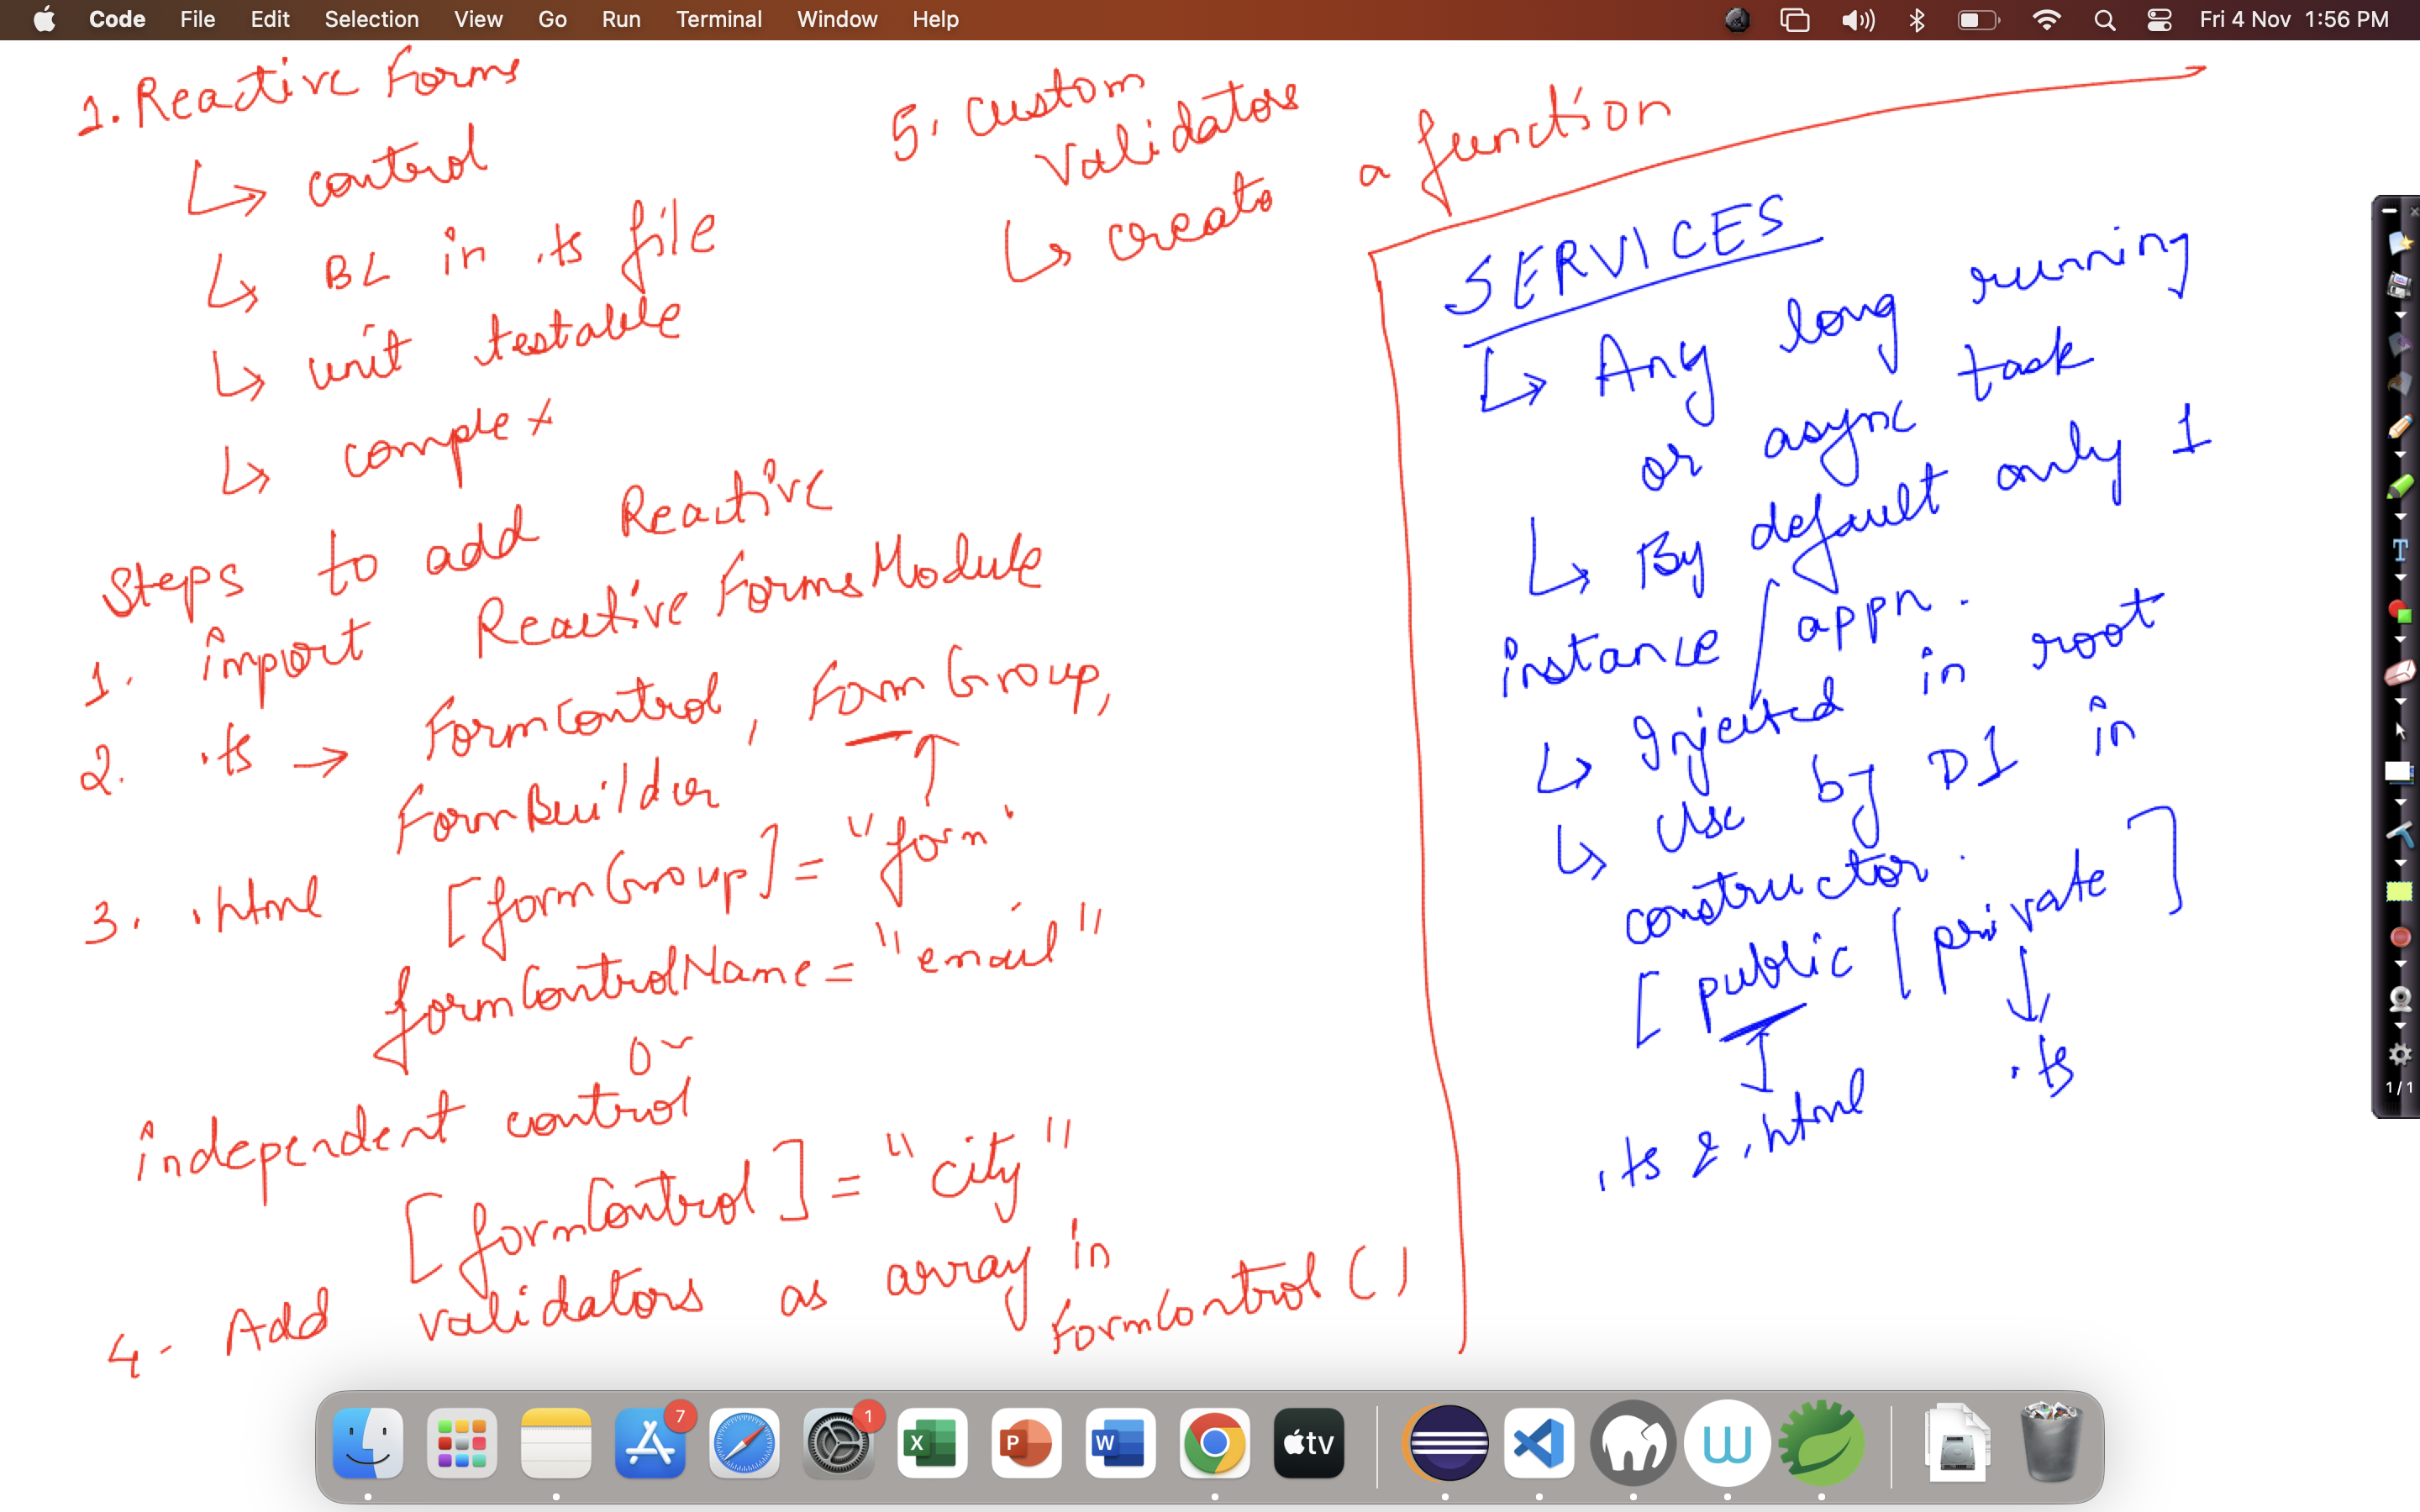 Code File Edit Selection View Go Run Terminal Window Help Fri 4 Nov 1:56 PM
1. Reactive Forms
↳ control
↳ BL in .ts file
↳ unit testable
↳ complex
Steps to add Reactive
1. import ReactiveFormsModule
2. .ts → FormControl, FormGroup,
FormBuilder
3. .html [formGroup] = "form"
formControlName = "email"
or
independent control
[formControl] = "city"
4. Add validators as array in
FormControl ()
5. Custom
Validators
↳ create a function
SERVICES
↳ Any long running
or async task
↳ By default only 1
instance / appn.
↳ Injected in root
↳ Use by DI in
constructor.
[public / private]
.ts & .html .ts
T
1/1
7
1
X
P
W
tv
W